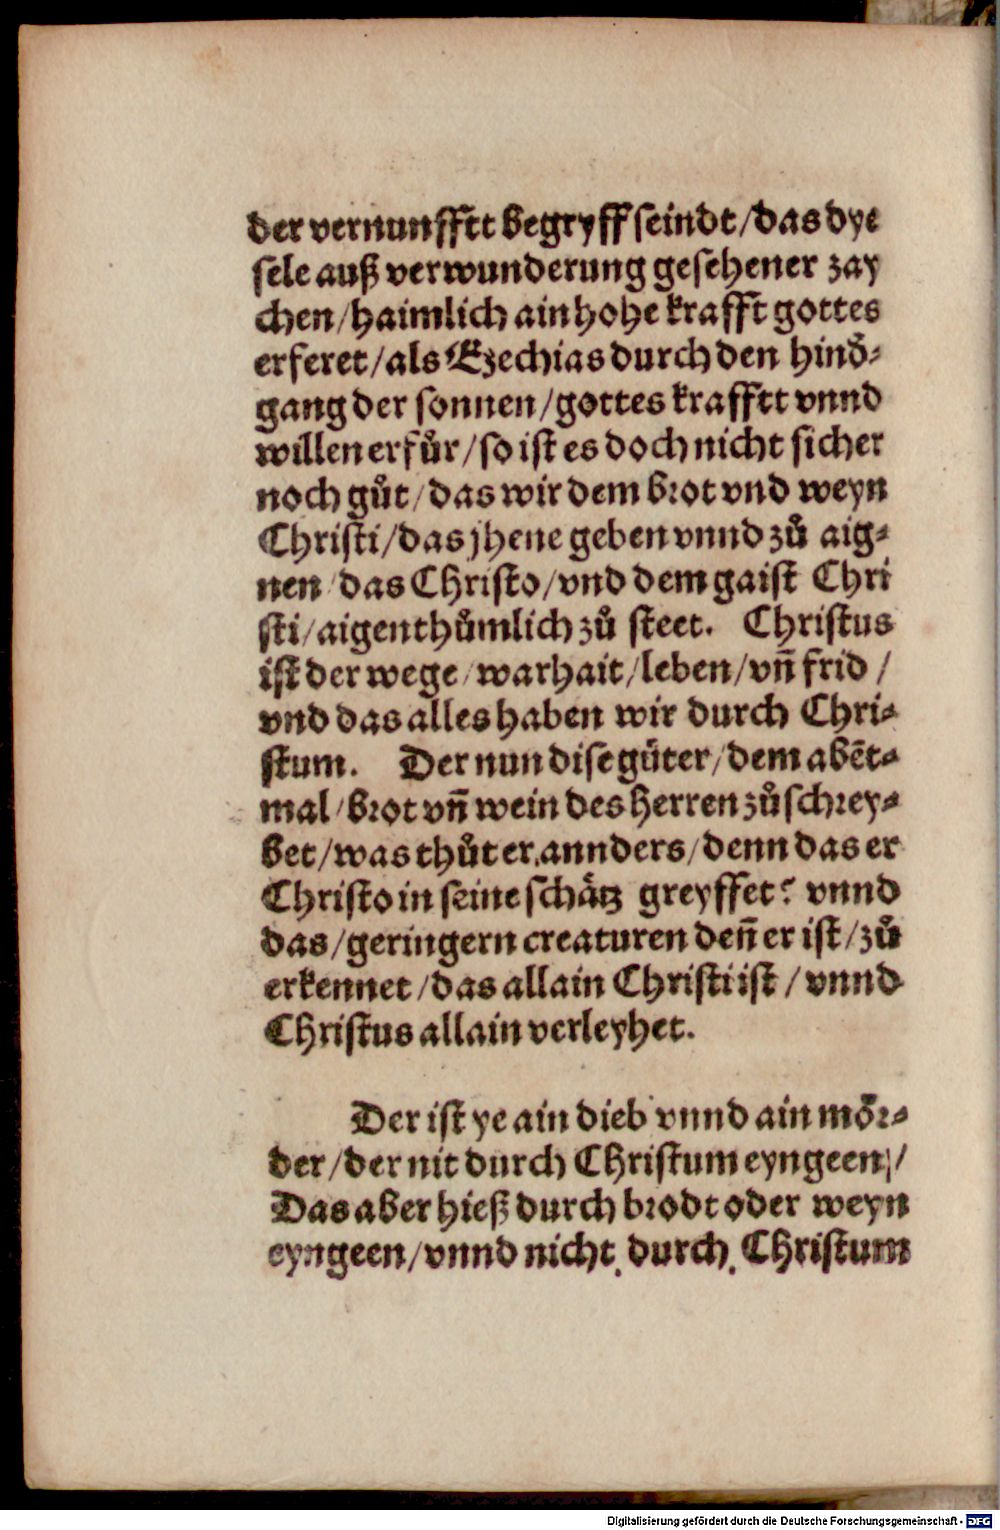 der vernunfftt begryff seindt/das dye
sele auß verwunderung gesehener zay
chen/haimlich ain hohe krafft gottes
erferet/als Ezechias durch den hind᷑⸗
gang der sonnen/gottes krafftt vnnd
willen erfůr/so ist es doch nicht sicher
noch gůt/das wir dem brot vnd weyn
Christi/das jhene geben vnnd zů aig⸗
nen/das Christo/vnd dem gaist Chri
sti/aigenthůmlich zů steet. Christus
ist der wege/warhait/leben/vn̄ frid/
vnd das alles haben wir durch Chri⸗
stum. Der nun dise gůter/dem abēt⸗
mal/brot vn̄ wein des herren zůschrey⸗
bet/was thůt er annders/denn das er
Christo in seine schätz greyffet? vnnd
das/geringern creaturen den̄ er ist/zů
erkennet/das allain Christi ist/vnnd
Christus allain verleyhet.
Der ist ye ain dieb vnnd ain mör⸗
der/der nit durch Christum eyngeen/
Das aber hieß durch brodt oder weyn
eyngeen/vnnd nicht durch Christum
Digitalisierung gefördert durch die Deutsche Forschungsgemeinschaft - DFG